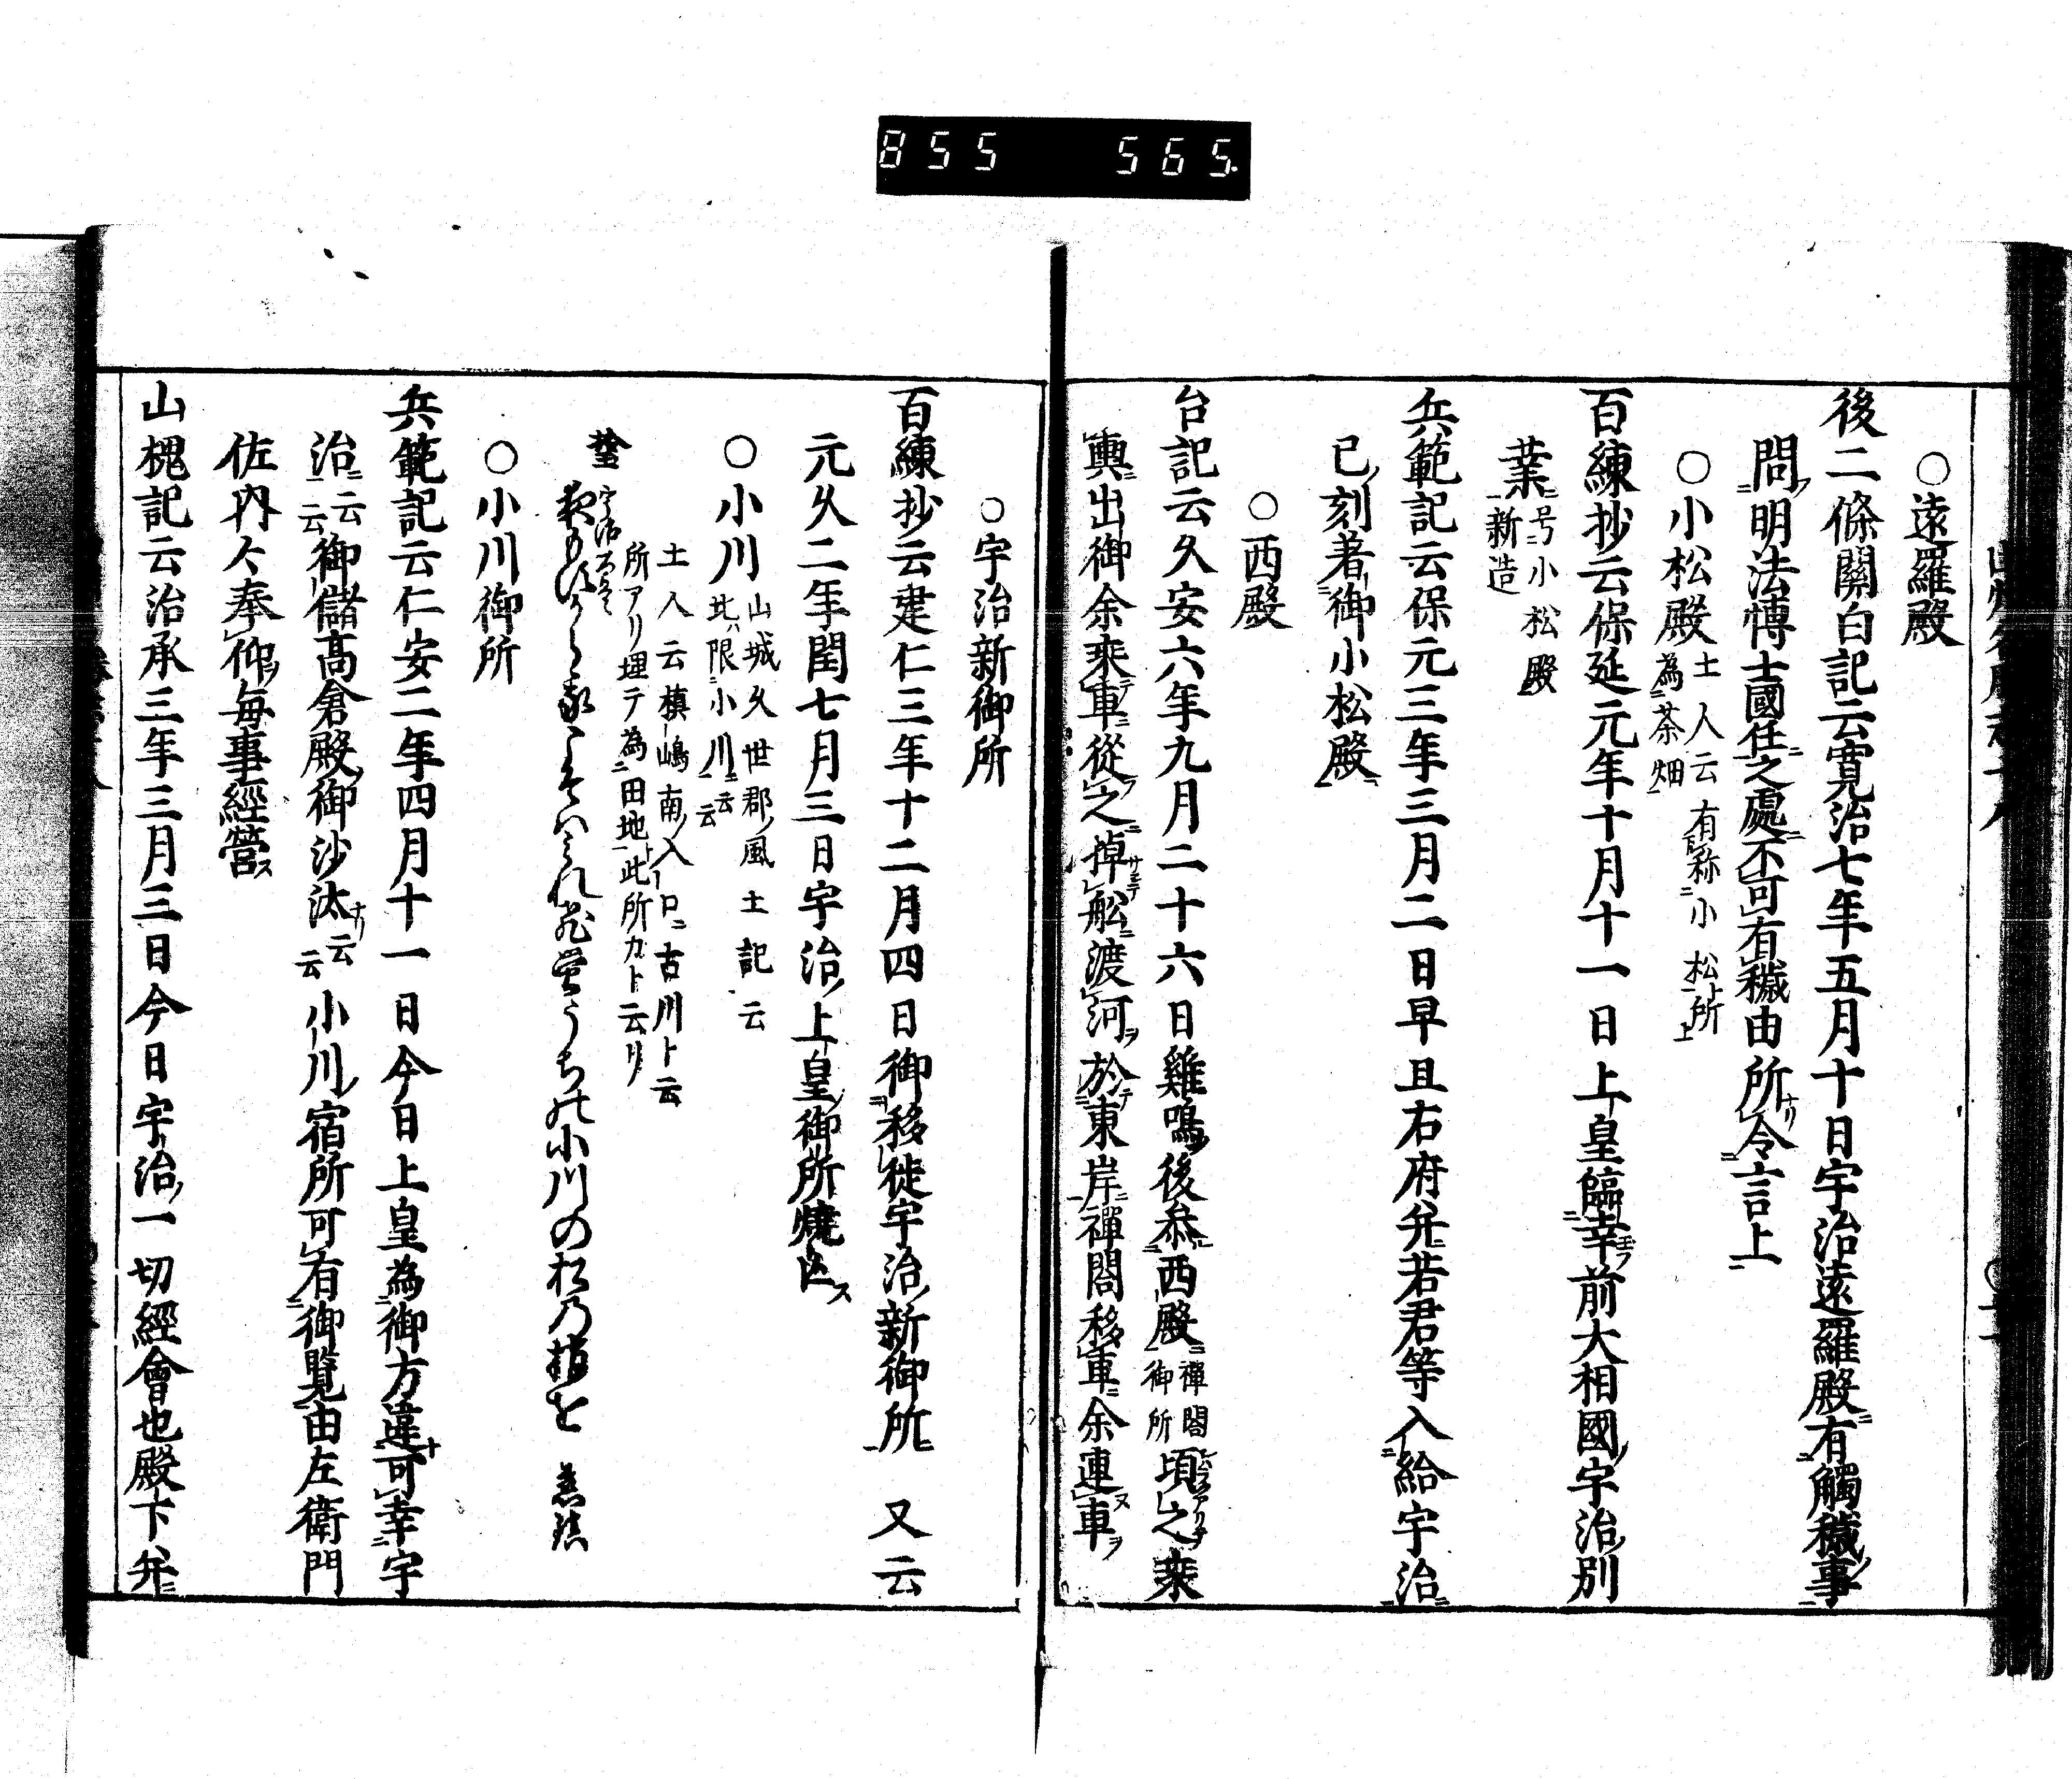 855 565.
○遠羅殿
後二條關白記云寛治七年五月十日宇治遠羅殿有觸穢事
問明法博士國任之處不可有穢由所令言上
○小松殿 土人云有称小松所
為茶畑
百練抄云保延元年十月十一日上皇臨幸前大相國宇治別
業 号小松殿
新造
兵範記云保元三年三月二日早旦右府并若君等入給宇治
巳刻著御小松殿
○西殿
台記云久安六年九月二十六日雞鳴後参西殿 禪閤
御所 頃之乘
輿出御余乘車從之掉舩渡河於東岸禪閤移車余連車
○宇治新御所
百練抄云建仁三年十二月四日御移徙宇治新御所 又云
元久二年閏七月三日宇治上皇御所燒亡ス
○小川 山城久世郡風土記云
北ハ限小川云云
土人云槙嶋南ノ入口ニ古川ト云
所アリ埋テ為田地此所カト云リ
小川の
兵範記云仁安二年四月十一日今日上皇為御方違可幸宇
○小川御所
治云云御儲髙倉殿御沙汰云云小川宿所可有御覧由左衛門
佐内々奉仰毎事經營ス
山槐記云治承三年三月三日今日宇治一切經會也殿下并